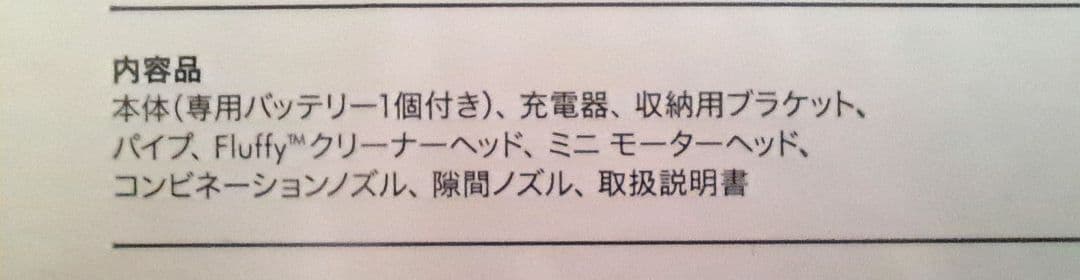 内容品
本体(専用バッテリー1個付き)、充電器、収納用ブラケット、
パイプ、Fluffy™クリーナーヘッド、ミニ モーターヘッド、
コンビネーションノズル、隙間ノズル、取扱説明書